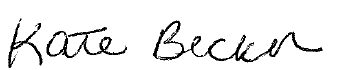 Kate Becker